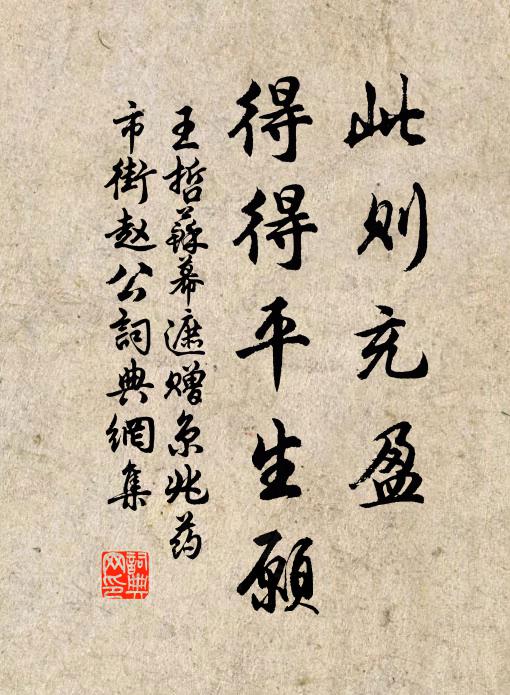 此则充盈
得得平生愿
王哲蘇幕遮赠京兆药
市街赵公詞典網集
詞典
网印